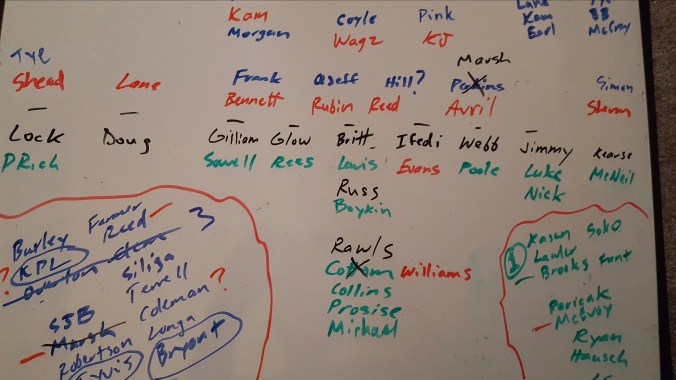 Kam Coyle Pink Lane
Morgan Wagz KJ Kam BB
Earl McCray
TYE Marsh
Shead Lane Frank Clark Hill? Perkins Simon
Bennett Rubin Reed Avril Sherm
Lock Doug Gilliam Glow Britt Ifedi Webb Jimmy Kearse
PRich Sowell Rees Lewis Evans Poole Luke McNeil
Russ Nick
Boykin
Burley Farmer 3 Rawls Kasen Soko
KPL Reed Williams 1 Lawler
? Siliga Collins Brooks Fant
Terrell ? Prosise
SJB Coleman Michael McEvoy
Marsh Longa Ryan
Robertson Bryant Hausch